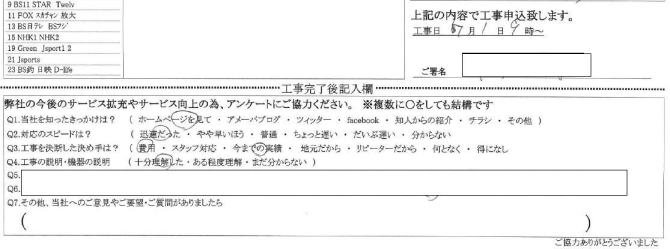 9 BS11 STAR Twelv
11 FOX スカチャン 放大
13 BS日テレ BSフジ
15 NHK1 NHK2
19 Green Jsport1 2
21 Jsports
23 BS釣 日映 D-life
上記の内容で工事申込致します。
工事日 月 1日 9時～
ご署名
工事完了後記入欄
弊社の今後のサービス拡充やサービス向上の為、アンケートにご協力ください。 ※複数に〇をしても結構です
Q1.当社を知ったきっかけは？ （ ホームページを見て ・ アメーバブログ ・ ツイッター ・ facebook ・ 知人からの紹介 ・ チラシ ・ その他 ）
Q2.対応のスピードは？ （ 迅速だった ・ やや早いほう ・ 普通 ・ ちょっと遅い ・ だいぶ遅い ・ 分からない
Q3.工事を決断した決め手は？ （ 費用 ・ スタッフ対応 ・ 今までの実績 ・ 地元だから ・ リピーターだから ・ 何となく ・ 得になし
Q4.工事の説明・機器の説明 （ 十分理解した ・ ある程度理解 ・ まだ分からない ）
Q5.
Q6.
Q7.その他、当社へのご意見やご要望・ご質問がありましたら
（ ）
ご協力ありがとうございました